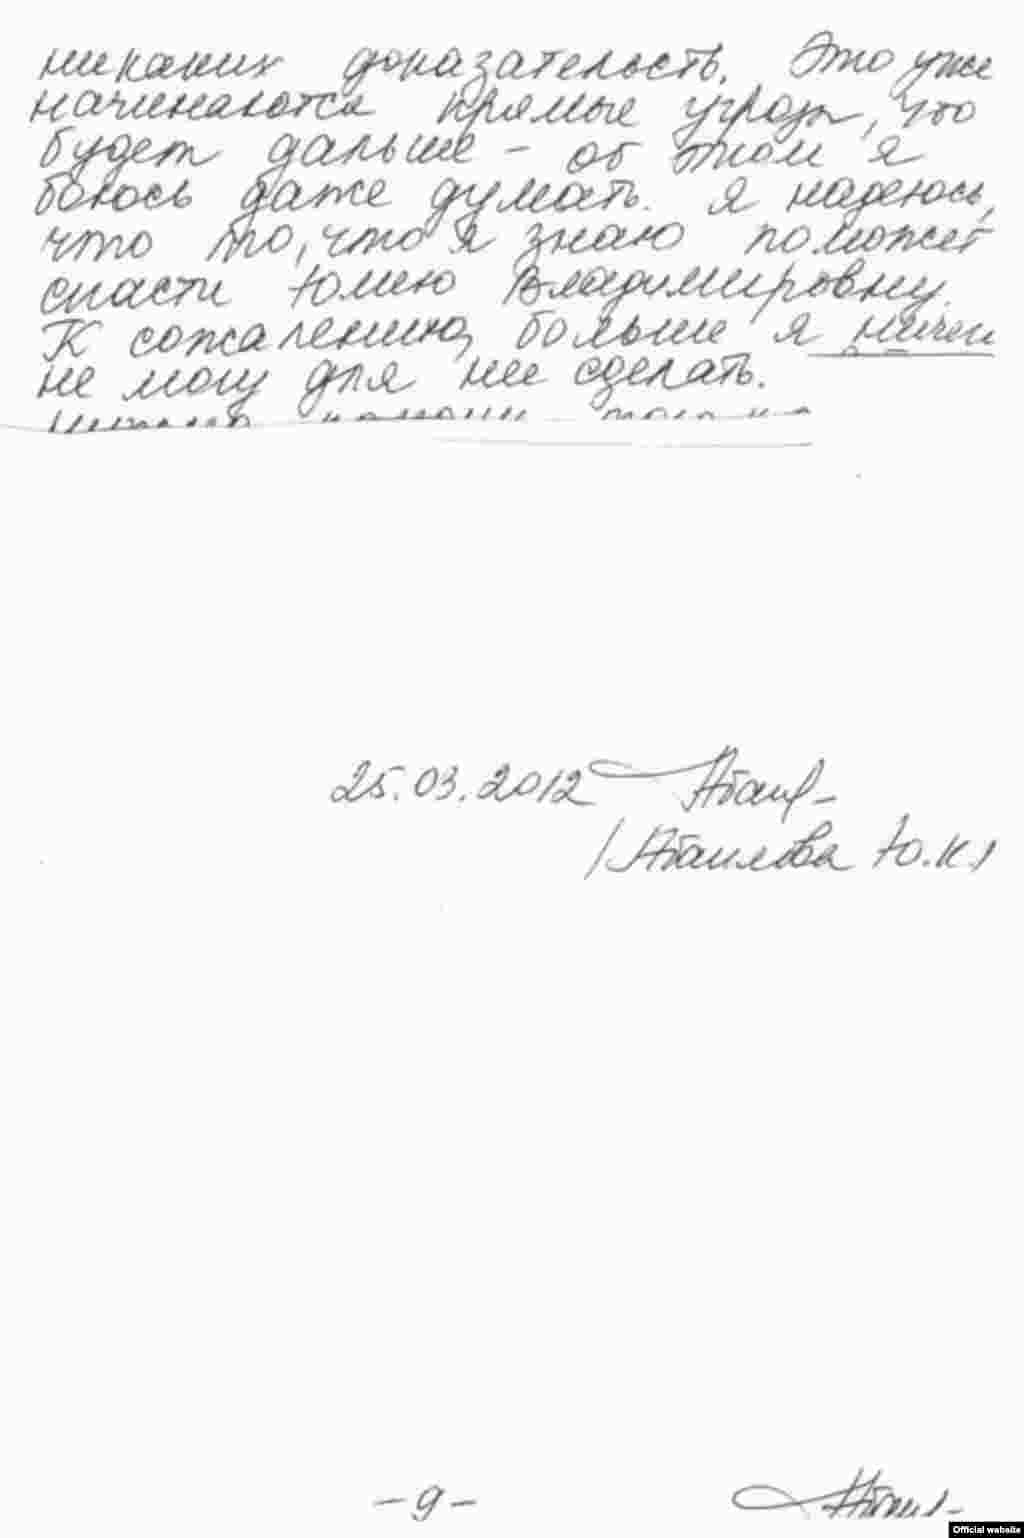 никаких доказательств. Это уже
начинаются прямые угрозы, что
будет дальше – об этом я
боюсь даже думать. Я надеюсь,
что то, что я знаю поможет
спасти Юлию Владимировну.
К сожалению, больше я ничем
не могу для нее сделать.
25.03.2012
Ю.К./
- 9 -
Official website